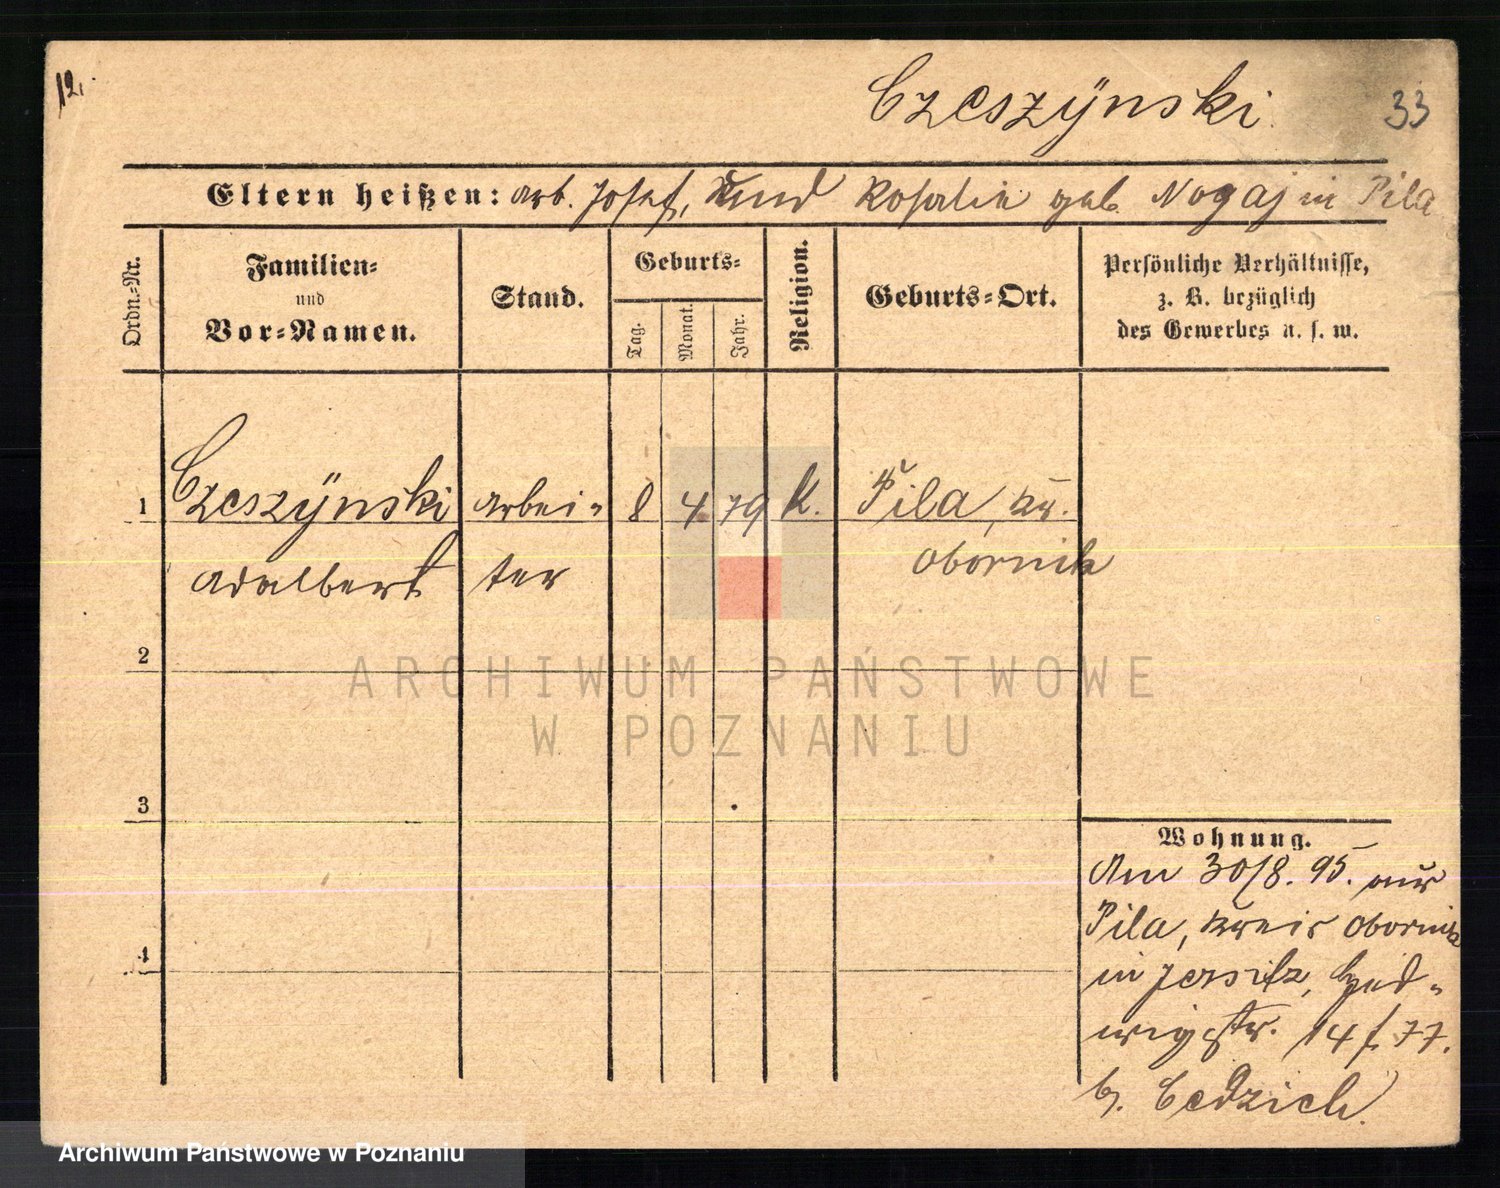 12.
Czeszÿnski
33
Eltern heißen: Arb. Josef, und Rosalie geb. Nogaj in Pila
Ordn.-Nr.
Familien-
und
Vor-Namen.
Stand.
Geburts-
Tag.
Monat.
Jahr.
Religion.
Geburts-Ort.
Persönliche Verhältnisse,
z. B. bezüglich
des Gewerbes u. s. w.
1 Czeszÿnski Arbei- 8 4 79 K. Pila, Kr.
Adalbert ter Obornik
2
ARCHIWUM PAŃSTWOWE
W POZNANIU
3
Wohnung.
Am 30/8. 95. aus
Pila, Kreis Obornik
in Jersitz, Hed-
wigstr. 14 f. 77.
b. Cedzich.
4
Archiwum Państwowe w Poznaniu